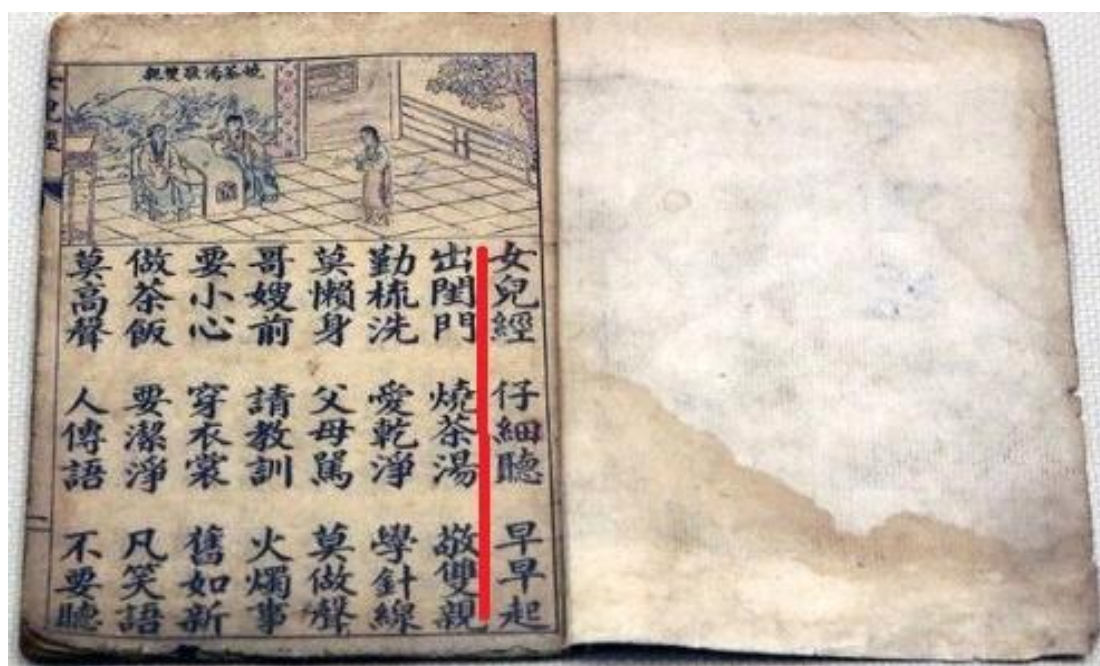 燒茶湯敬雙親
女兒經 仔細聽 早早起
出閨門 燒茶湯 敬雙親
勤梳洗 愛乾淨 學針線
莫懶身 父母罵 莫做聲
哥嫂前 請教訓 火燭事
要小心 穿衣裳 舊如新
做茶飯 要潔淨 凡笑語
莫高聲 人傳語 不要聽
女兒經